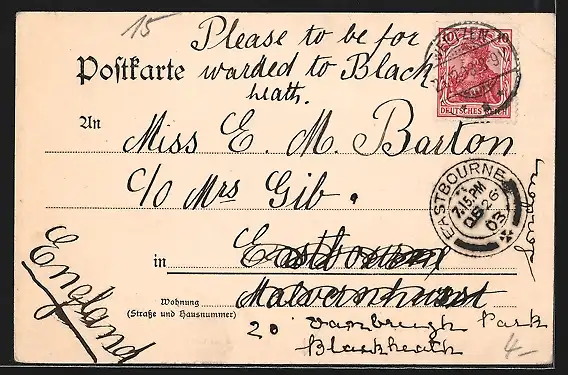 15
Please to be for
Postkarte warded to Black
heath.
DEUTSCHES REICH
10
An Miss E. M. Barton
c/o Mrs Gib.
EASTBOURNE
7.15 PM
26
03
in Eastbourne
England
Wohnung Malvernhurst
(Straße und Hausnummer)
20 Vanbrugh Park
Blackheath
4-